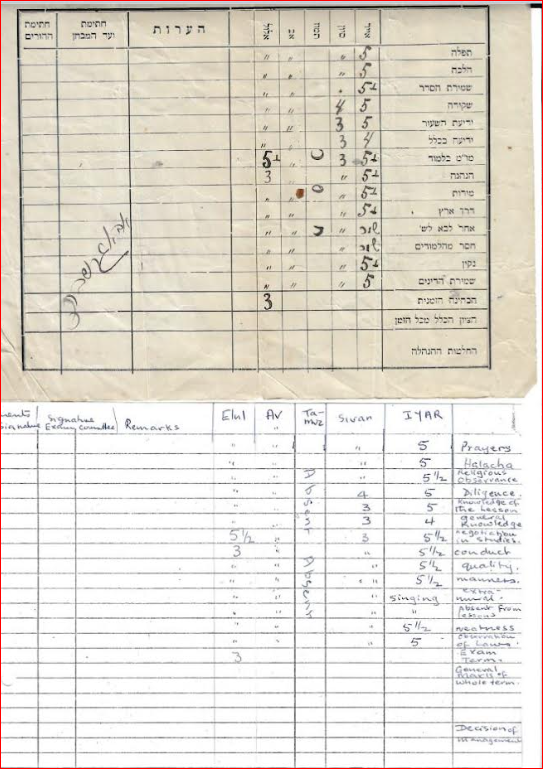 חתימת ההורים חתימת ועד המבחן הערות אלול אב תמוז סיון אייר
תפלה 5 " " " "
הלכה 5 " " "
שמירת הסדר 5½ " " "
שקידה 5 4 " "
ידיעת השעור 5 3 " "
ידיעה בכלל 4 3 " "
מו"מ בלמוד 5½ 3 " 5½
הנהגה 5½ " " 3
מדות 5½ " " "
דרך ארץ 5½ " " "
אחר לבא לש'
חסר מהלמודים
נקיון 5½ " " "
שמירת הדינים 5 " " "
הבחינה הזמנית 3
הציון הכללי מכל הזמן
החלטות ההנהלה
Signature Examing Committee Remarks Elul AV Ta-muz Sivan IYAR
" " " 5 Prayers
" " " 5 Halacha
" " " 5 1/2 Religious Observance
" " 4 5 Diligence.
" " 3 5 Knowledge of the Lesson
" " 3 4 general Knowledge
5 1/2 " 3 5 1/2 negotiation in Studies.
3 " " 5 1/2 conduct
" " " 5 1/2 quality.
" " " 5 1/2 manners.
" " " Singing extra-mural.
" " " " absent from lessons
" " " 5 1/2 neatness
" " " 5 observation of Laws.
3 Exam Term.
General marks of whole term.
Decision of management
Absent Absent